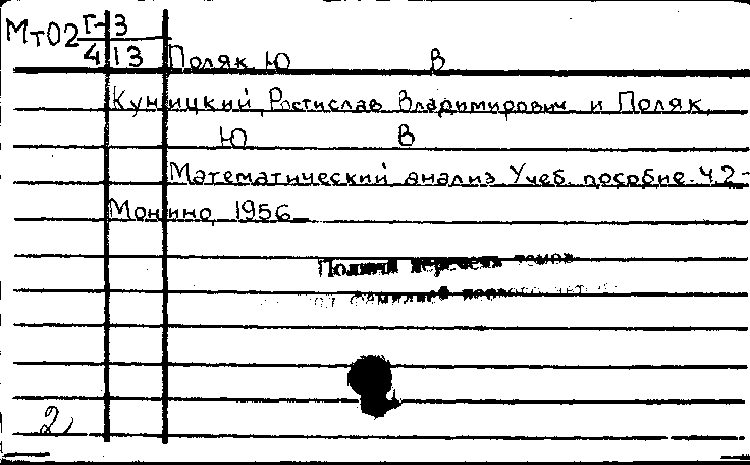 Мт02 Г-3
4 13 Поляк Ю В
Куницкий, Ростислав Владимирович и Поляк,
Ю В
Математический анализ Учеб. пособие. Ч.2-
Монино, 1956
Полный перечень томов
фамилией первого
2